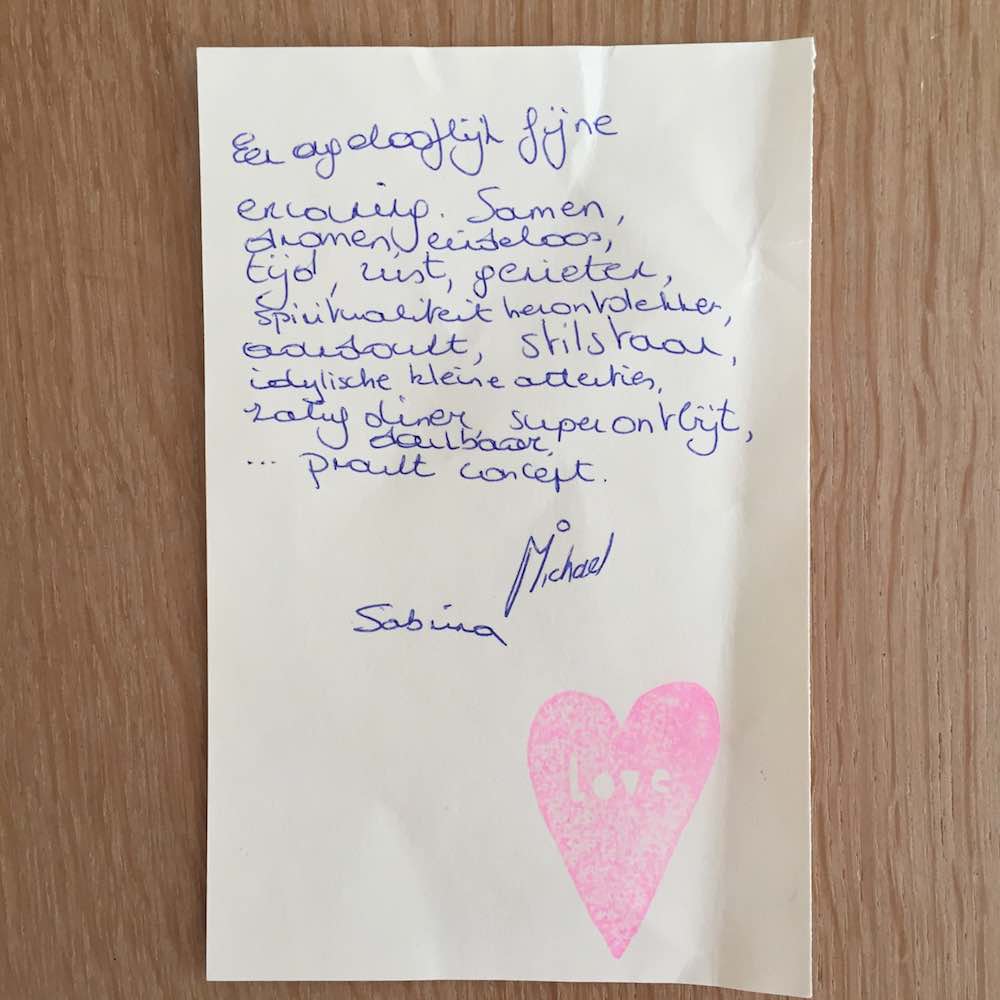 Een ongelooflijk fijne
ervaring. Samen,
dromen, eindeloos,
tijd, rust, genieten,
spiritualiteit herontdekken,
aandacht, stilstaan,
idylische kleine attenties,
zalig diner, superontbijt,
dankbaar,
... pracht concept.
Michael
Sabrina
love